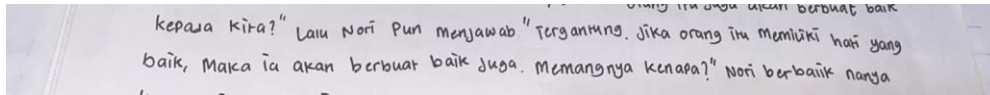 orang itu juga akan berbuat baik
kepada kita?" Lalu Nori Pun menjawab "Tergantung. Jika orang itu memiliki hati yang
baik, Maka ia akan berbuat baik Juga. Memangnya kenapa?" Nori berbaiik nanya